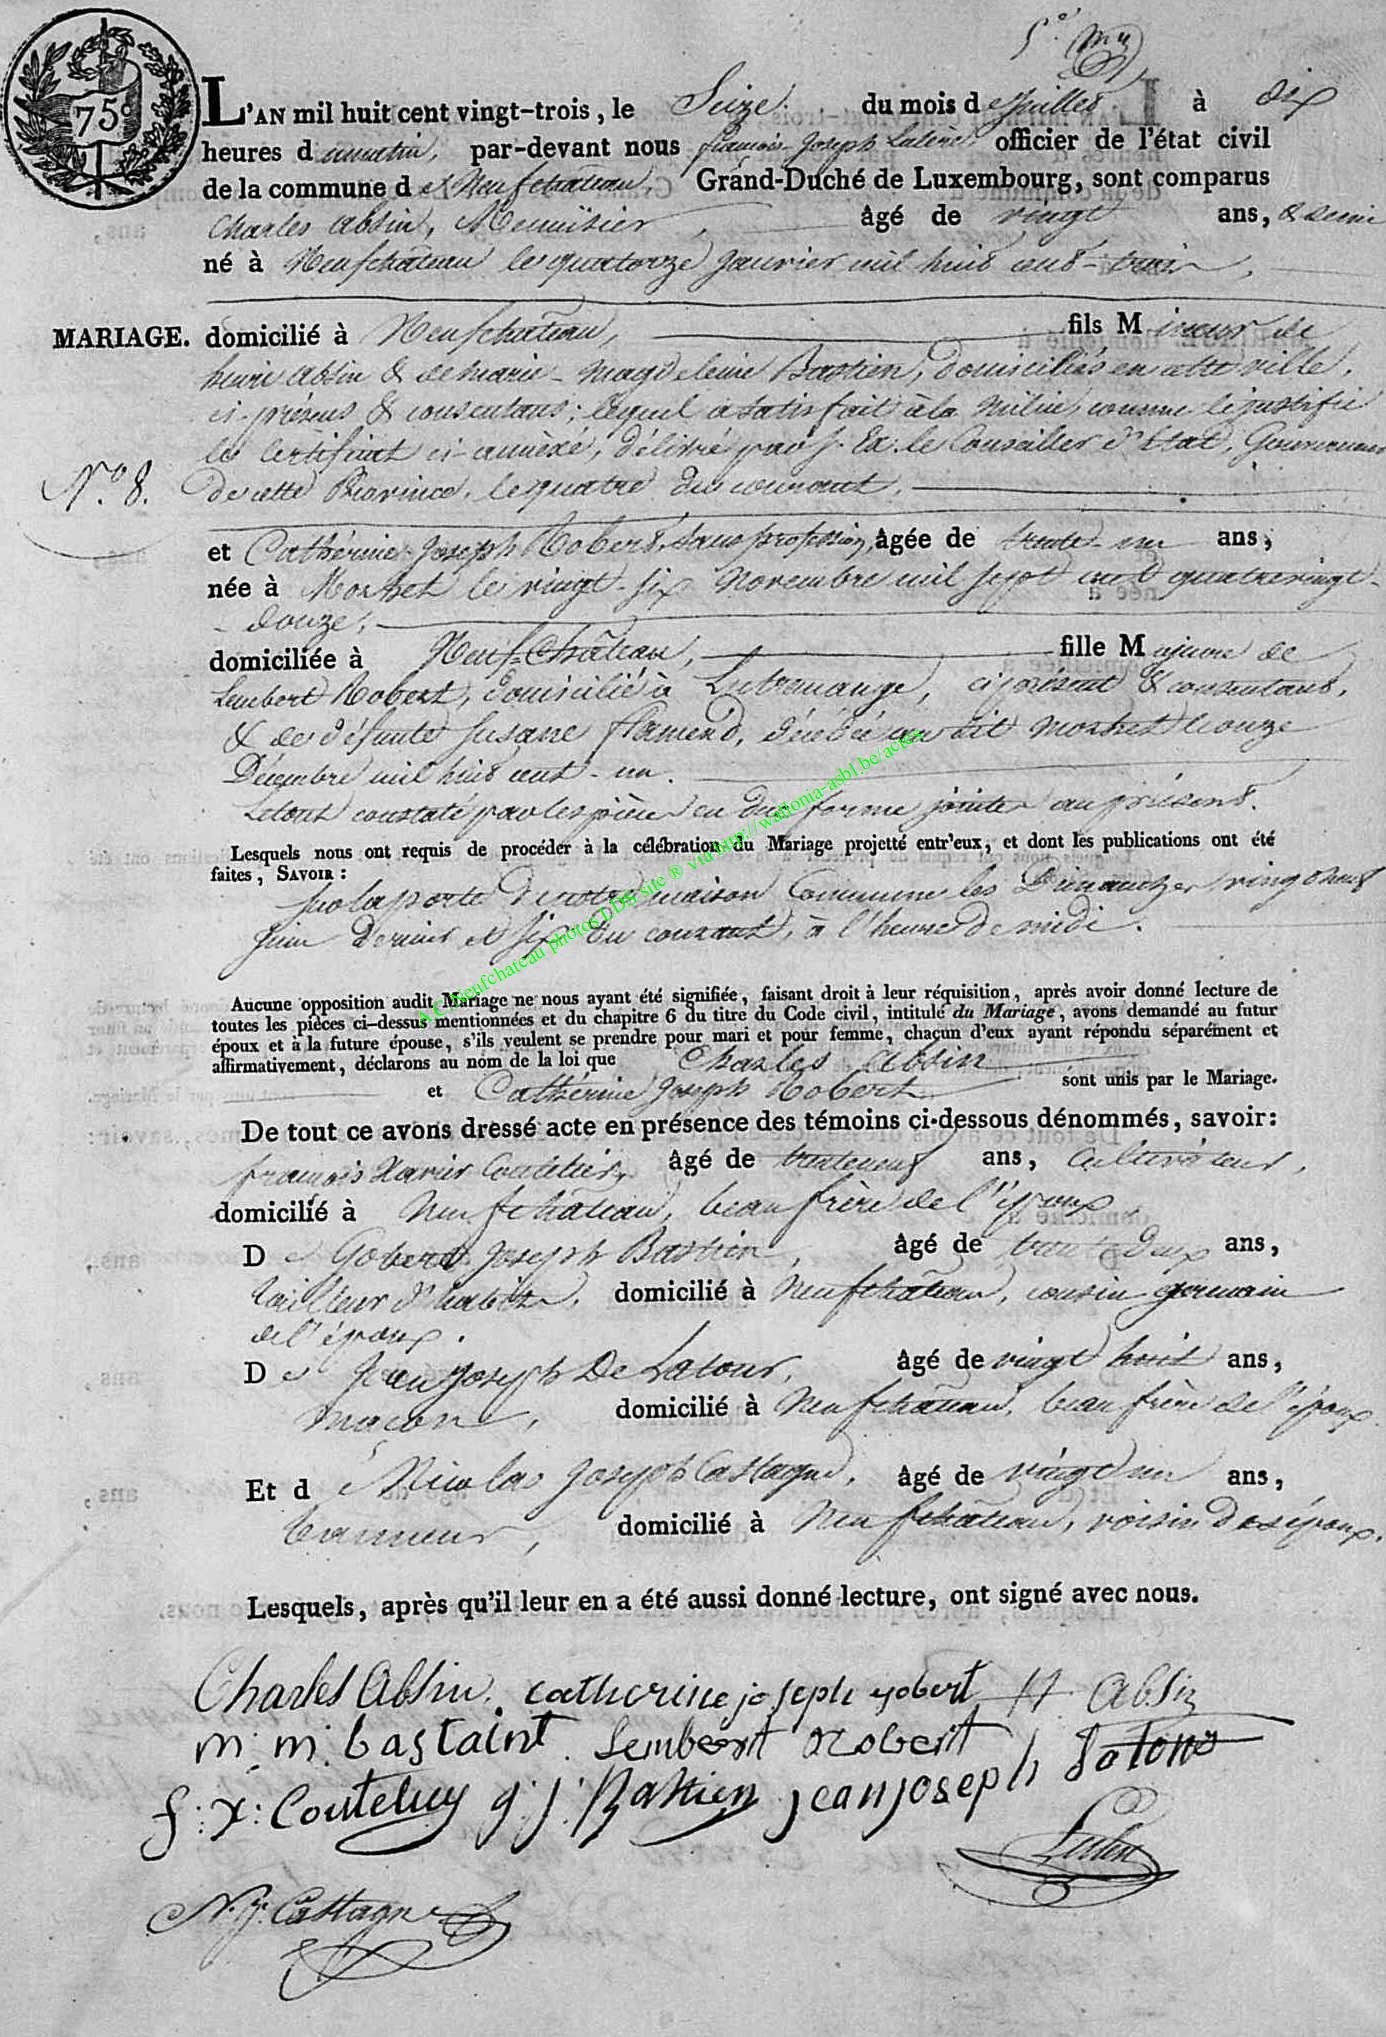 75c
L'AN mil huit cent vingt-trois, le Seize du mois de Juillet à dix
heures du matin, par-devant nous françois Joseph officier de l'état civil
de la commune de Neufchâteau, Grand-Duché de Luxembourg, sont comparus
Charles Absin, Menuisier, âgé de vingt ans, & demi
né à Neufchâteau le quatorze Janvier mil huit cent-trois,
MARIAGE. domicilié à Neufchateau, fils Mineur de
henri Absin & de marie-Magdeleine Bastien, domiciliés en cette ville,
ci-présens & consentans; lequel a satisfait à la Milice, comme le justifie
le Certificat ci-annexé, délivré par S. Ex. le Conseiller d'Etat, Gouverneur
N.o 8. de cette Province, le quatre du courant.
et Cathérine-Joseph Robert, sans profession, âgée de trente-un ans,
née à Morhet le vingt-six Novembre mil sept cent quatrevingt-
-douze,
domiciliée à Neuf-Château, fille Majeure de
Lambert Robert, domicilié à Lutremange, ci présent & consentant,
& de défunte Susane flamend, décédée au dit Morhet le onze
Décembre mil huit cent-un.
Le tout constaté par les pièces en due forme jointes au présent.
Lesquels nous ont requis de procéder à la célébration du Mariage projetté entr'eux, et dont les publications ont été
faites, SAVOIR :
sur la porte de notre maison Commune les Dimanches vingt neuf
Juin Dernier et six du courant, à l'heure de midi.
Aucune opposition audit Mariage ne nous ayant été signifiée, faisant droit à leur réquisition, après avoir donné lecture de
toutes les pièces ci-dessus mentionnées et du chapitre 6 du titre du Code civil, intitulé du Mariage, avons demandé au futur
époux et à la future épouse, s'ils veulent se prendre pour mari et pour femme, chacun d'eux ayant répondu séparément et
affirmativement, déclarons au nom de la loi que Charles Absin
et Cathérine Joseph Robert sont unis par le Mariage.
De tout ce avons dressé acte en présence des témoins ci-dessous dénommés, savoir:
françois Xavier Coutelier, âgé de trenteneuf ans, Cultivateur,
domicilié à Neufchâteau, beau frère de l'époux,
De Gobert Joseph Bastien, âgé de trente deux ans,
tailleur d'habits, domicilié à Neufchâteau, cousin germain
de l'époux.
De Jean Joseph De Latour, âgé de vingt huit ans,
maçon, domicilié à Neufchâteau, beau frère de l'époux.
Et de Nicolas Joseph Castagne, âgé de vingt un ans,
tanneur, domicilié à Neufchâteau, voisin des époux.
Lesquels, après qu'il leur en a été aussi donné lecture, ont signé avec nous.
Charles Absin. catherine joseph robert H. Absin
m: m: bastaint. Lembert Robert
f: x: Couteluy g: j: Bastien jean joseph Latour
N. J. Castagne
A.C. Neufchateau photos DDB site ® via http://wallonia-asbl.be/actes